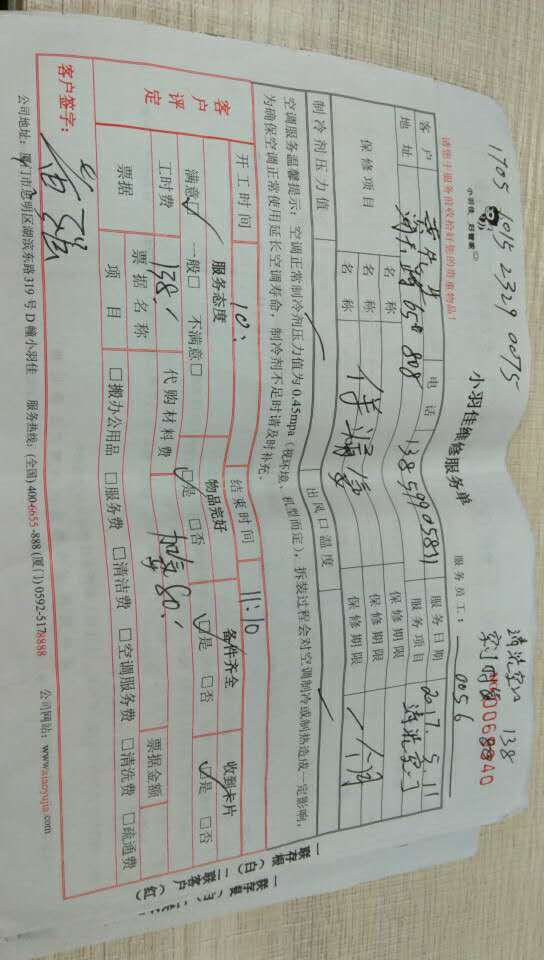 1705 1015 2329 0075
清洗空调 138
小羽佳 好管家
请您于服务前收拾好您的贵重物品！
小羽佳维修服务单
服务员工： 0056
客户 电话 13859905871 服务日期 2017.5.11
地址 650 808 服务项目 清洗空调
保修项目 名称 保修期限
名称 保修期限 一个月
名称 保修期限
制冷剂压力值 出风口温度
空调服务温馨提示：空调正常制冷剂压力值为0.45mpa（视环境、机型而定），拆装过程会对空调制冷或制热造成一定影响，
为确保空调正常使用延长空调寿命，制冷剂不足时请及时补充。
开工时间 10: 结束时间 11:10
客户评定 服务态度 物品完好 备件齐全 收到卡片
满意□ 一般□ 不满意□ □是 □否 □是 □否 □是 □否
工时费 138. 代购材料费 加氟80.
票据 票据名称 票据金额
项目 □搬办公用品 □服务费 □清洁费 □空调服务费 □清洗费 □疏通费
客户签字：
公司地址：厦门市思明区湖滨东路319号D幢小羽佳 服务热线：(全国)400-6655-888 (厦门)0592-5178888 公司网站：www.xiaoyujia.com
一联存根（白） 二联客户（红）